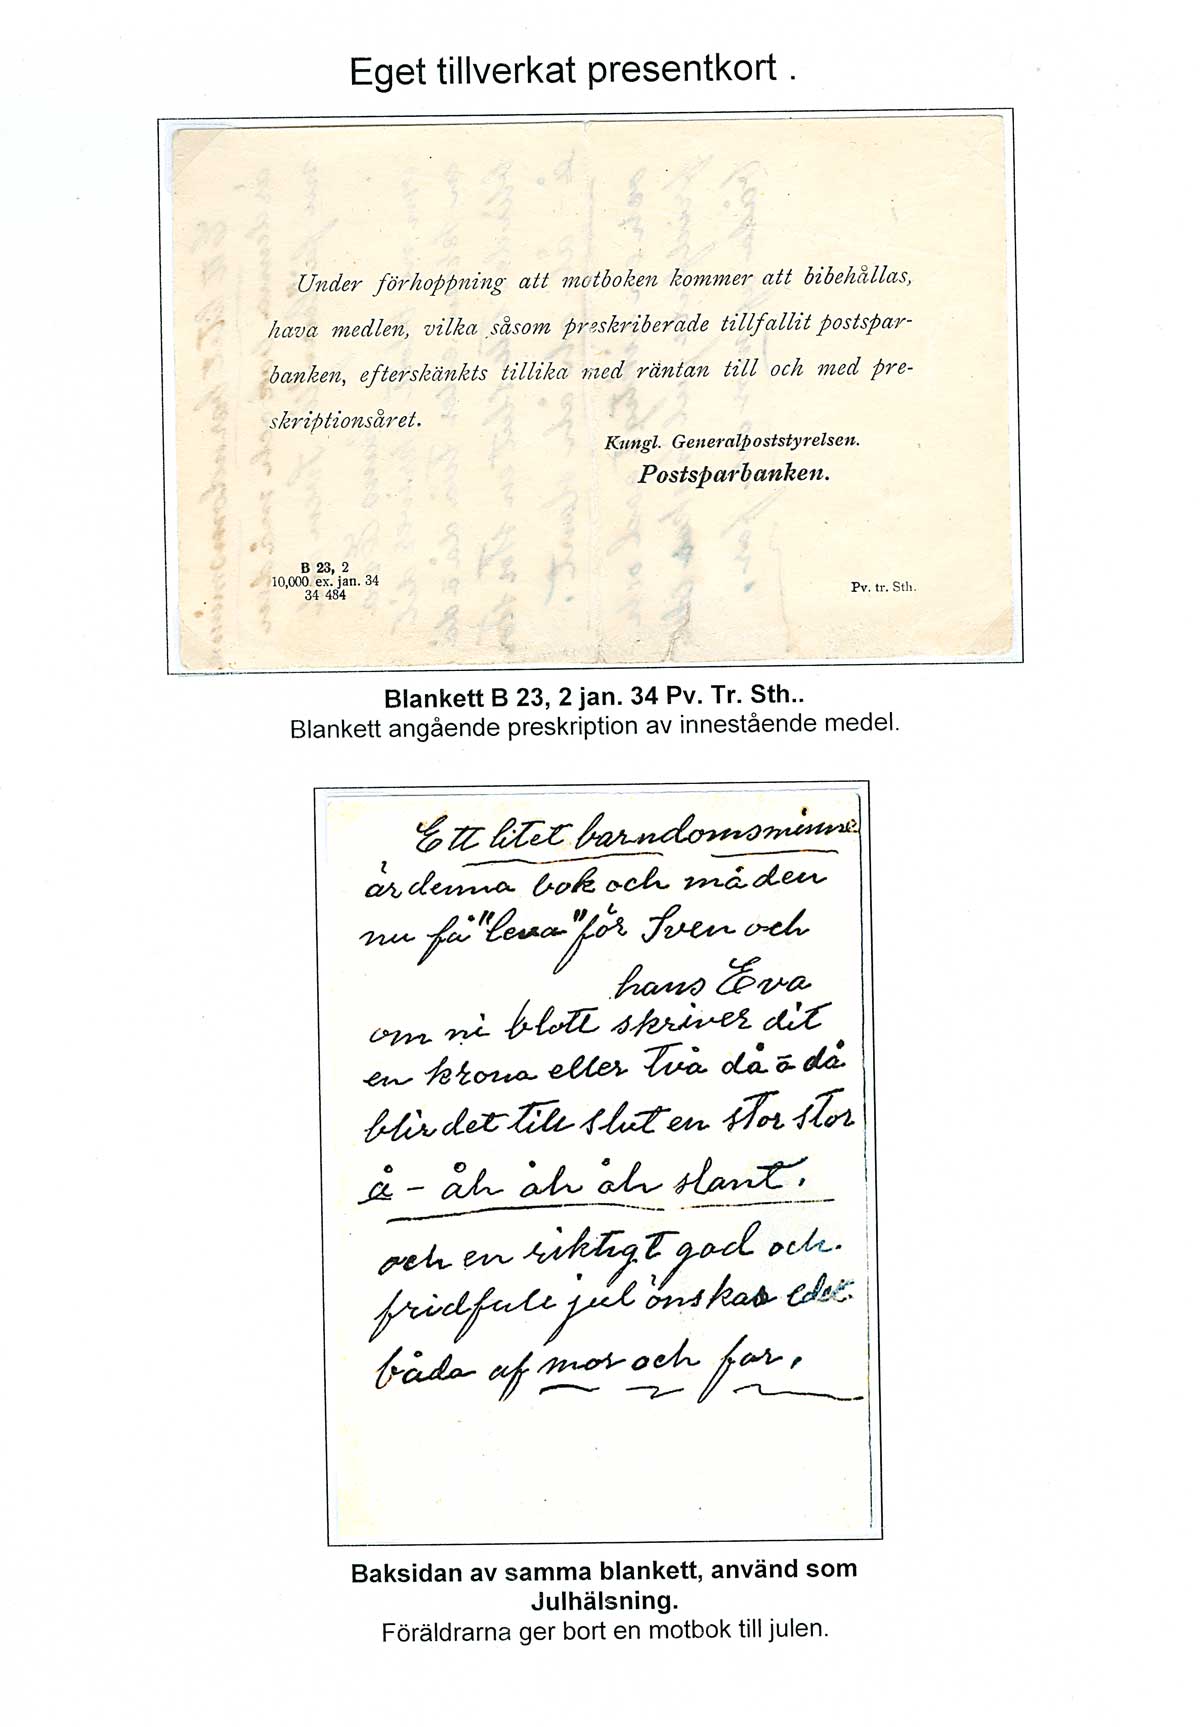 Eget tillverkat presentkort .
Under förhoppning att motboken kommer att bibehållas,
hava medlen, vilka såsom preskriberade tillfallit postspar-
banken, efterskänkts tillika med räntan till och med pre-
skriptionsåret.
Kungl. Generalpoststyrelsen.
Postsparbanken.
B 23, 2
10,000. ex. jan. 34
34 484
Pv. tr. Sth.
Blankett B 23, 2 jan. 34 Pv. Tr. Sth..
Blankett angående preskription av innestående medel.
Ett litet barndomsminne
är denna bok och må den
nu få "leva" för Sven och
hans Eva
om ni blott skriver dit
en krona eller två då å då
blir det till slut en stor stor
å – åh åh åh slant.
och en riktigt god och
fridfull jul önskas eder
båda af mor och far.
Baksidan av samma blankett, använd som
Julhälsning.
Föräldrarna ger bort en motbok till julen.